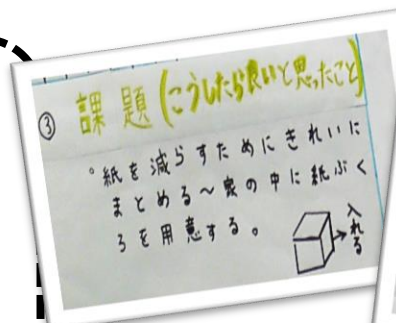 ③ 課題(こうしたら良いと思ったこと)
。紙を減らすためにきれいに
まとめる〜家の中に紙ぶく
ろを用意する。
入れる